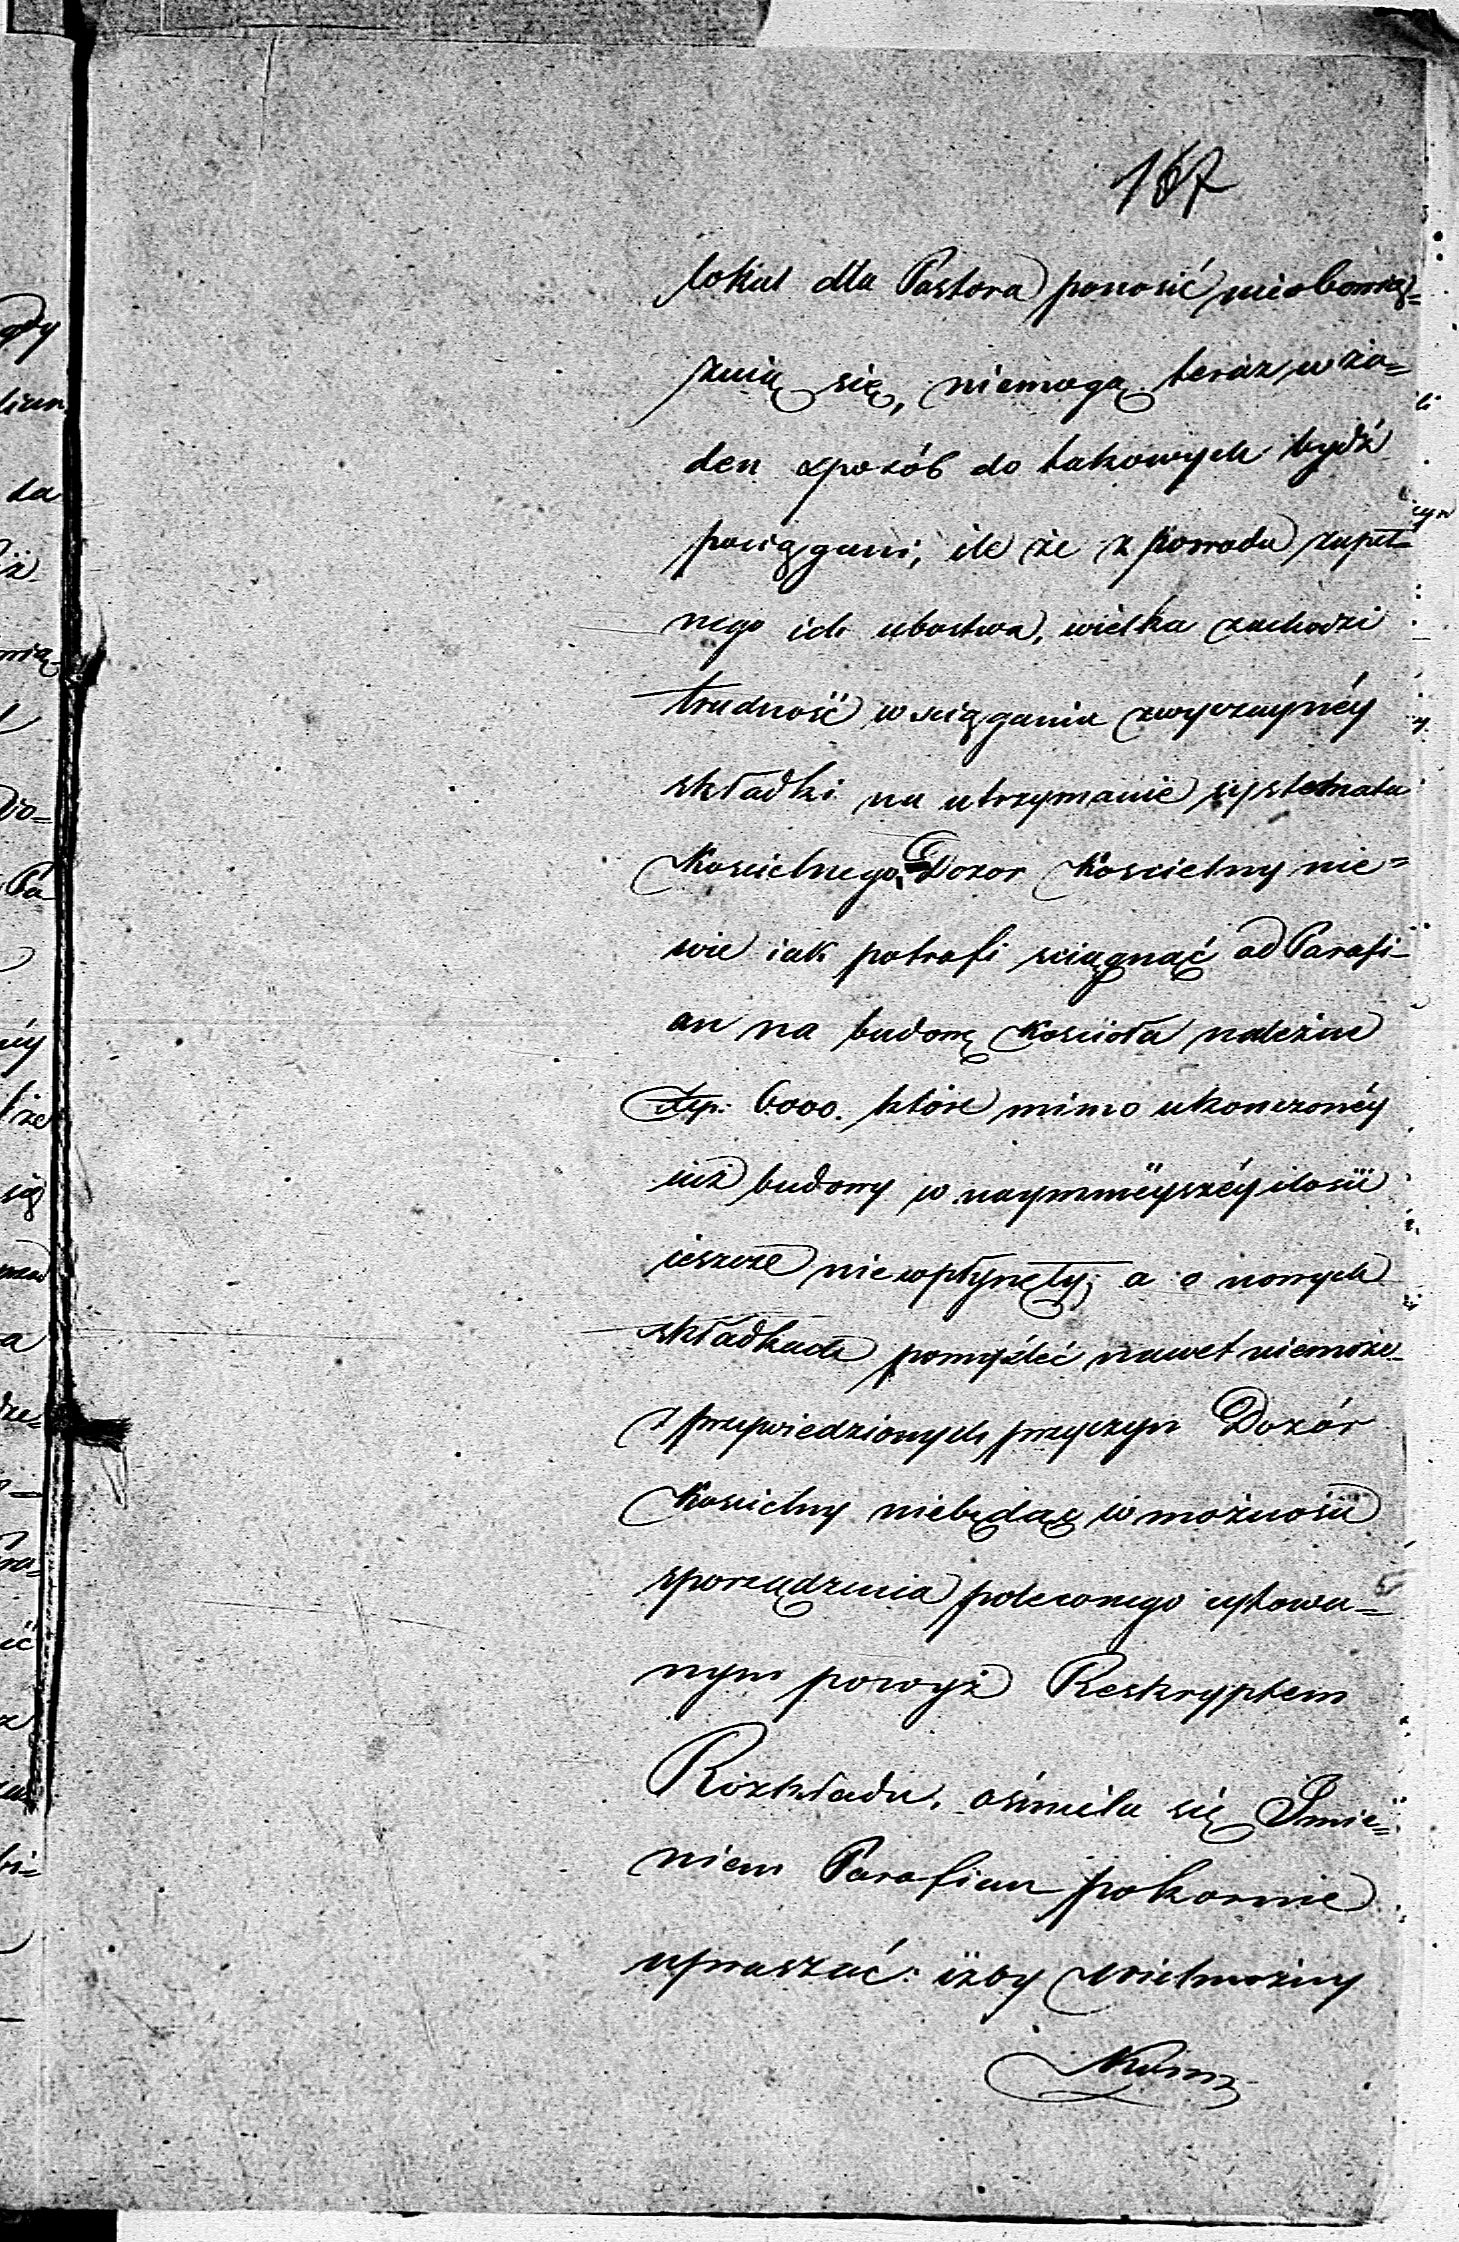 167
lokal dla Pastora ponosić nieobowią=
zuią się, niemogą teraz w ża=
den sposób do takowych bydź
pociągani; ile że z powodu zupeł=
nego ich ubostwa, wielka zachodzi
trudność w sciąganiu zwyczaynéy
składki na utrzymanie systematu
Koscielnego, Dozor Koscielny nie=
wie iak potrafi sciągnąć od Parafi=
an na budowę Kościoła należne
Złp. 6000. które mimo ukonczonéy
iuż budowy w naymnieyszéy ilości
ieszcze niewpłynęły; a o nowych
składkach pomyśleć nawet niemoże
Z przywiedzionych przyczyn Dozór
Koscielny niebędąc w możności
sporządzenia poleconego cytowa=
nym powyż Reskryptem
Rozkładu, ośmiela się Imie=
niem Parafian pokornie
upraszać: iżby Wielmożny